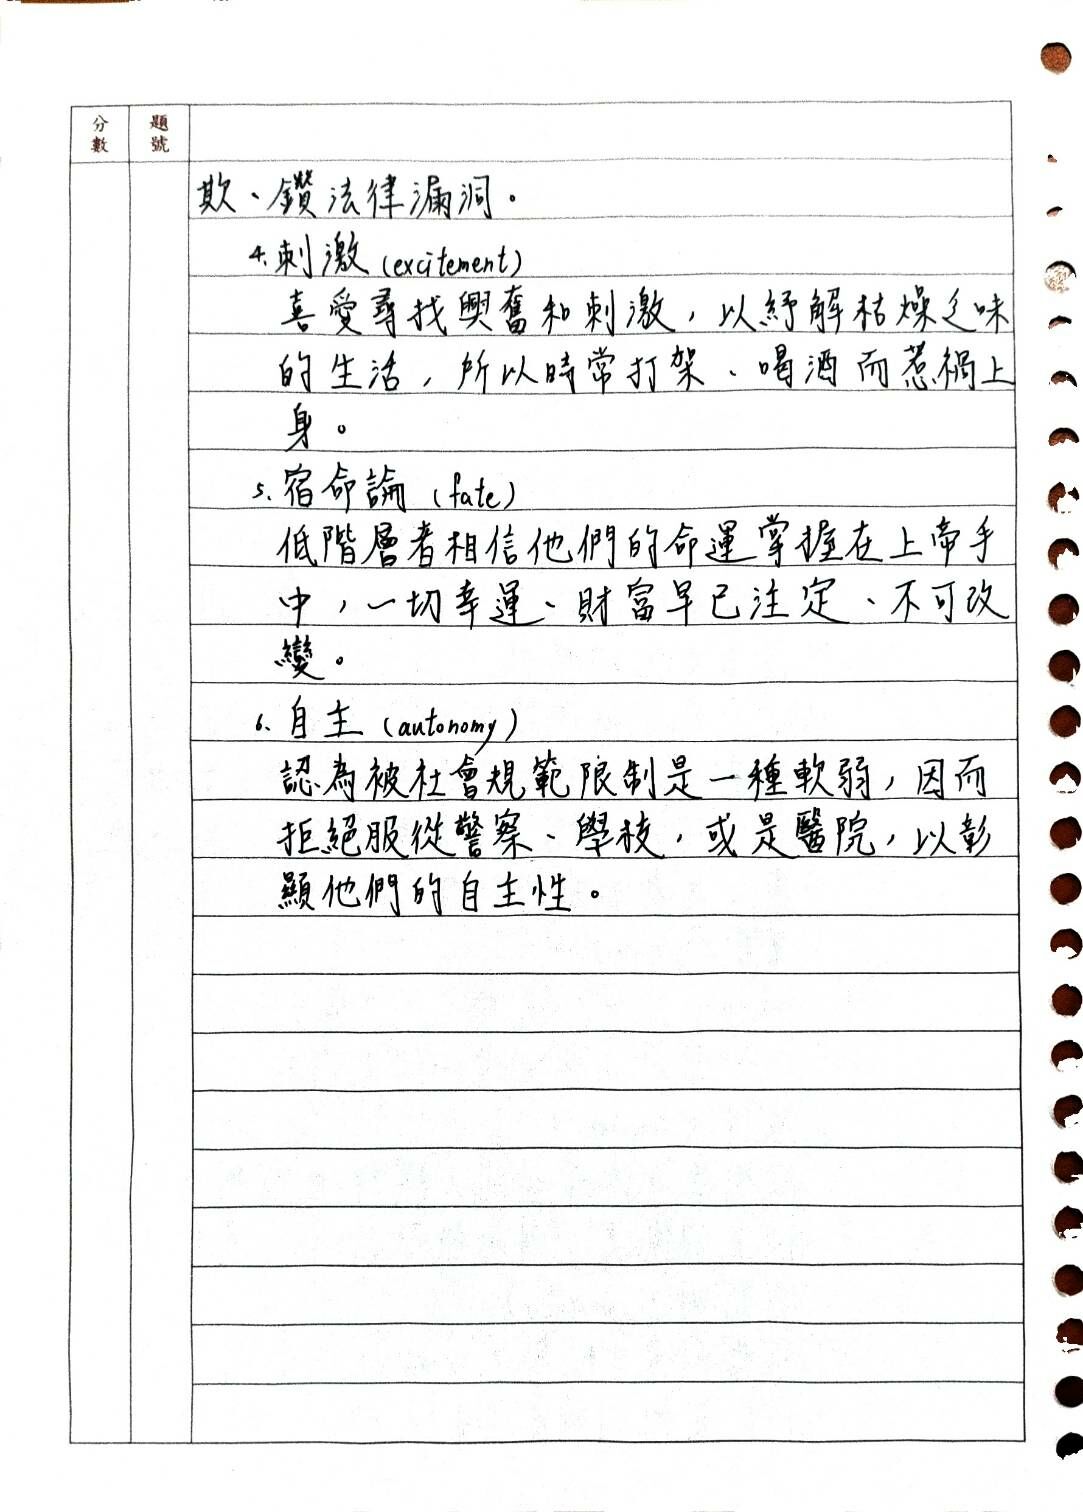 分數
題號
欺、鑽法律漏洞。
4.刺激(excitement)
喜愛尋找興奮和刺激,以紓解枯燥乏味
的生活,所以時常打架、喝酒而惹禍上
身。
5.宿命論(fate)
低階層者相信他們的命運掌握在上帝手
中,一切幸運、財富早已注定、不可改
變。
6.自主(autonomy)
認為被社會規範限制是一種軟弱,因而
拒絕服從警察、學校,或是醫院,以彰
顯他們的自主性。